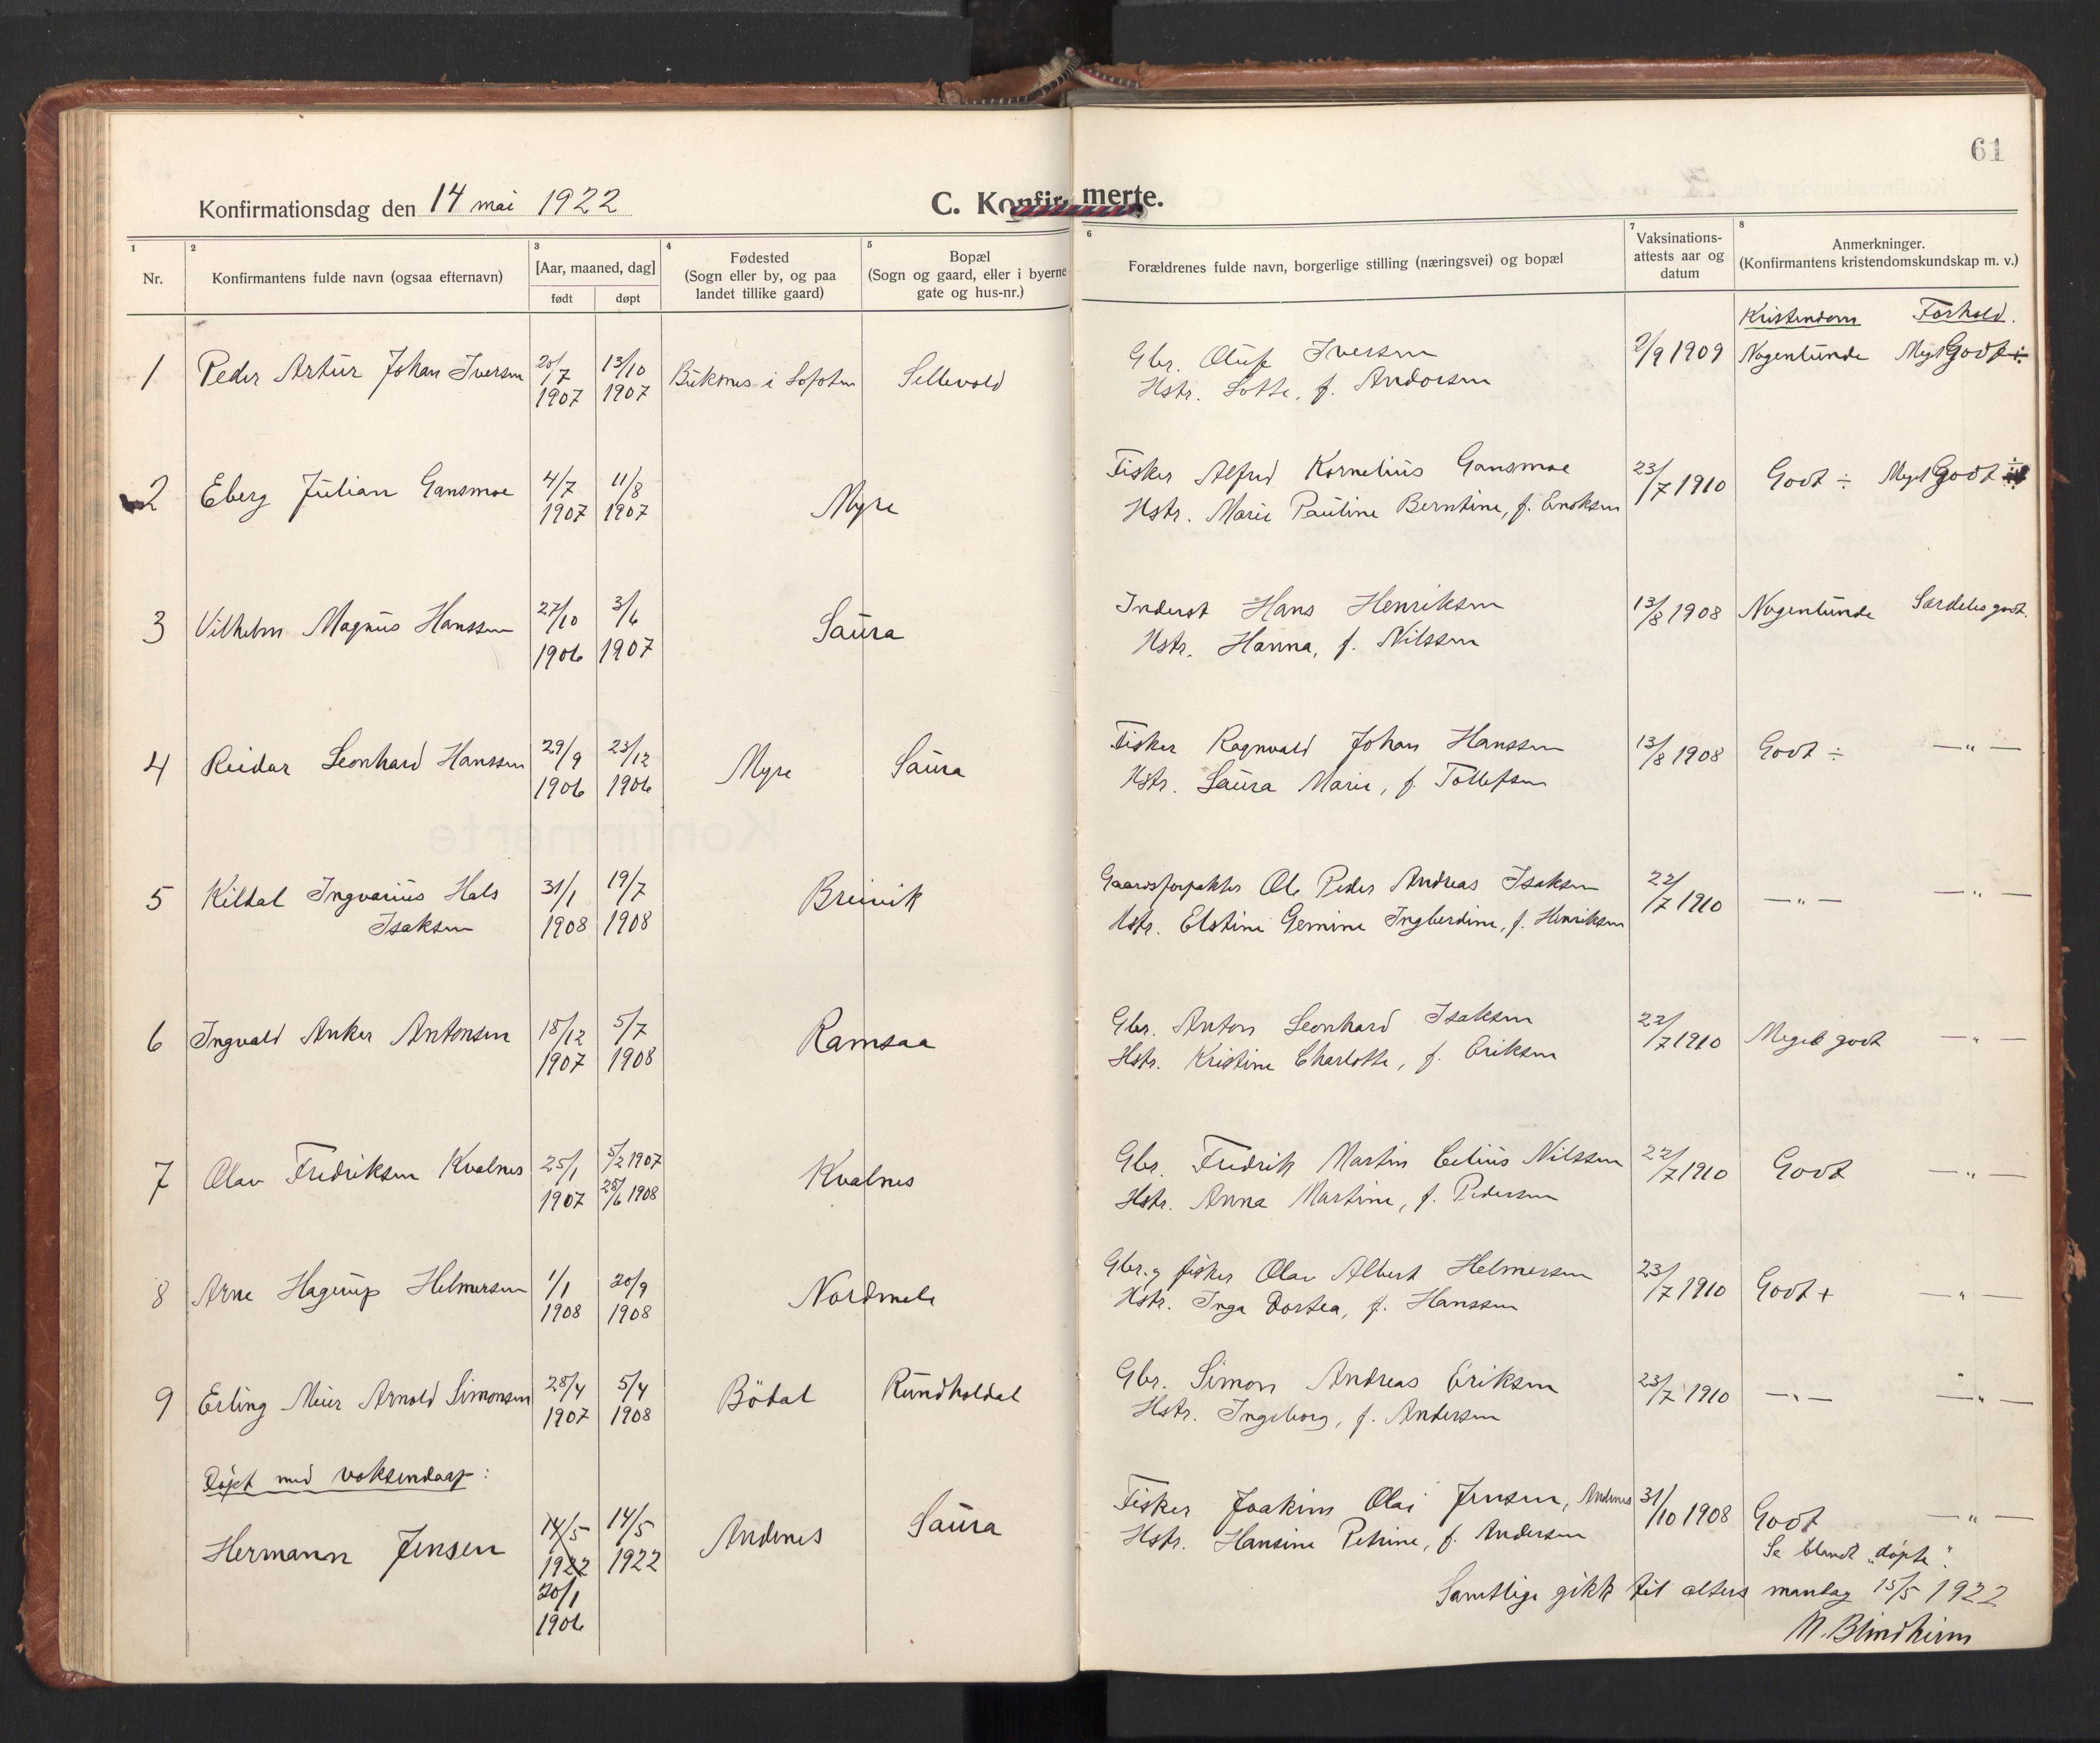 61
Konfirmationsdag den 14 mai 1922
C. Konfirmerte.
1 2 3 4 5 6 7 8
Nr.
Konfirmantens fulde navn (ogsaa efternavn)
[Aar, maaned, dag]
født døpt
Fødested
(Sogn eller by, og paa
landet tillike gaard)
Bopæl
(Sogn og gaard, eller i byerne
gate og hus-nr.)
Forældrenes fulde navn, borgerlige stilling (næringsvei) og bopæl
Vaksinations-
attests aar og
datum
Anmerkninger.
(Konfirmantens kristendomskundskap m. v.)
Kristendom Forhold.
1 Peder Artur Johan Iversen 20/7 1907 13/10 1907 Buksnes i Lofoten Sellevold
Gbr. Oluf Iversen
Hstr. Lotte, f. Andorsen
2/9 1909 Nogenlunde Meget Godt ÷
2 Eberg Julian Gansmoe 4/7 1907 11/8 1907 Myre
Fisker Alfred Kornelius Gansmoe
Hstr. Marie Pauline Berntine, f. Enoksen
23/7 1910 Godt ÷ Meget Godt ÷
3 Vilhelm Magnus Hanssen 27/10 1906 3/6 1907 Saura
Inderst Hans Henriksen
Hstr. Hanna, f. Nilssen
13/8 1908 Nogenlunde Særdeles godt.
4 Reidar Leonhard Hanssen 29/9 1906 23/12 1906 Myre Saura
Fisker Ragnvald Johan Hanssen
Hstr. Laura Marie, f. Tollefsen
13/8 1908 Godt ÷ — „ —
5 Kildal Ingvarius Hals
Isaksen
31/1 1908 19/7 1908 Breivik
Gaardsforpakter Ole Peder Andreas Isaksen
Hstr. Elstine Gemine Ingberdine, f. Henriksen
22/7 1910 — „ — — „ —
6 Ingvald Anker Antonsen 18/12 1907 5/7 1908 Ramsaa
Gbr. Anton Leonhard Isaksen
Hstr. Kristine Charlotte, f. Eriksen
22/7 1910 Meget godt — „ —
7 Olav Fredriksen Kvalnes 25/1 1907 5/2 1907 28/6 1908 Kvalnes
Gbr. Fredrik Martin Celius Nilssen
Hstr. Anna Martine, f. Pedersen
22/7 1910 Godt — „ —
8 Arne Hagerup Helmersen 1/1 1908 20/9 1908 Nordmele
Gbr. g fisker Olav Albert Helmersen
Hstr. Inga Dortea, f. Hanssen
23/7 1910 Godt + — „ —
9 Erling Meier Arnold Simonsen 28/4 1907 5/4 1908 Bödal Rundholdal
Gbr. Simon Andreas Eriksen
Hstr. Ingeborg, f. Andersen
23/7 1910 — „ — — „ —
Døpt med voksendaap:
Hermann Jensen 14/5 1922 20/1 1906 14/5 1922 Andenes Saura
Fisker Joakim Olai Jensen, Andenes
Hstr. Hansine Petrine, f. Andersen
31/10 1908 Godt — „ —
Se blandt „døpte".
Samtlige gikk til alters mandag 15/5 1922
M. Blindheim